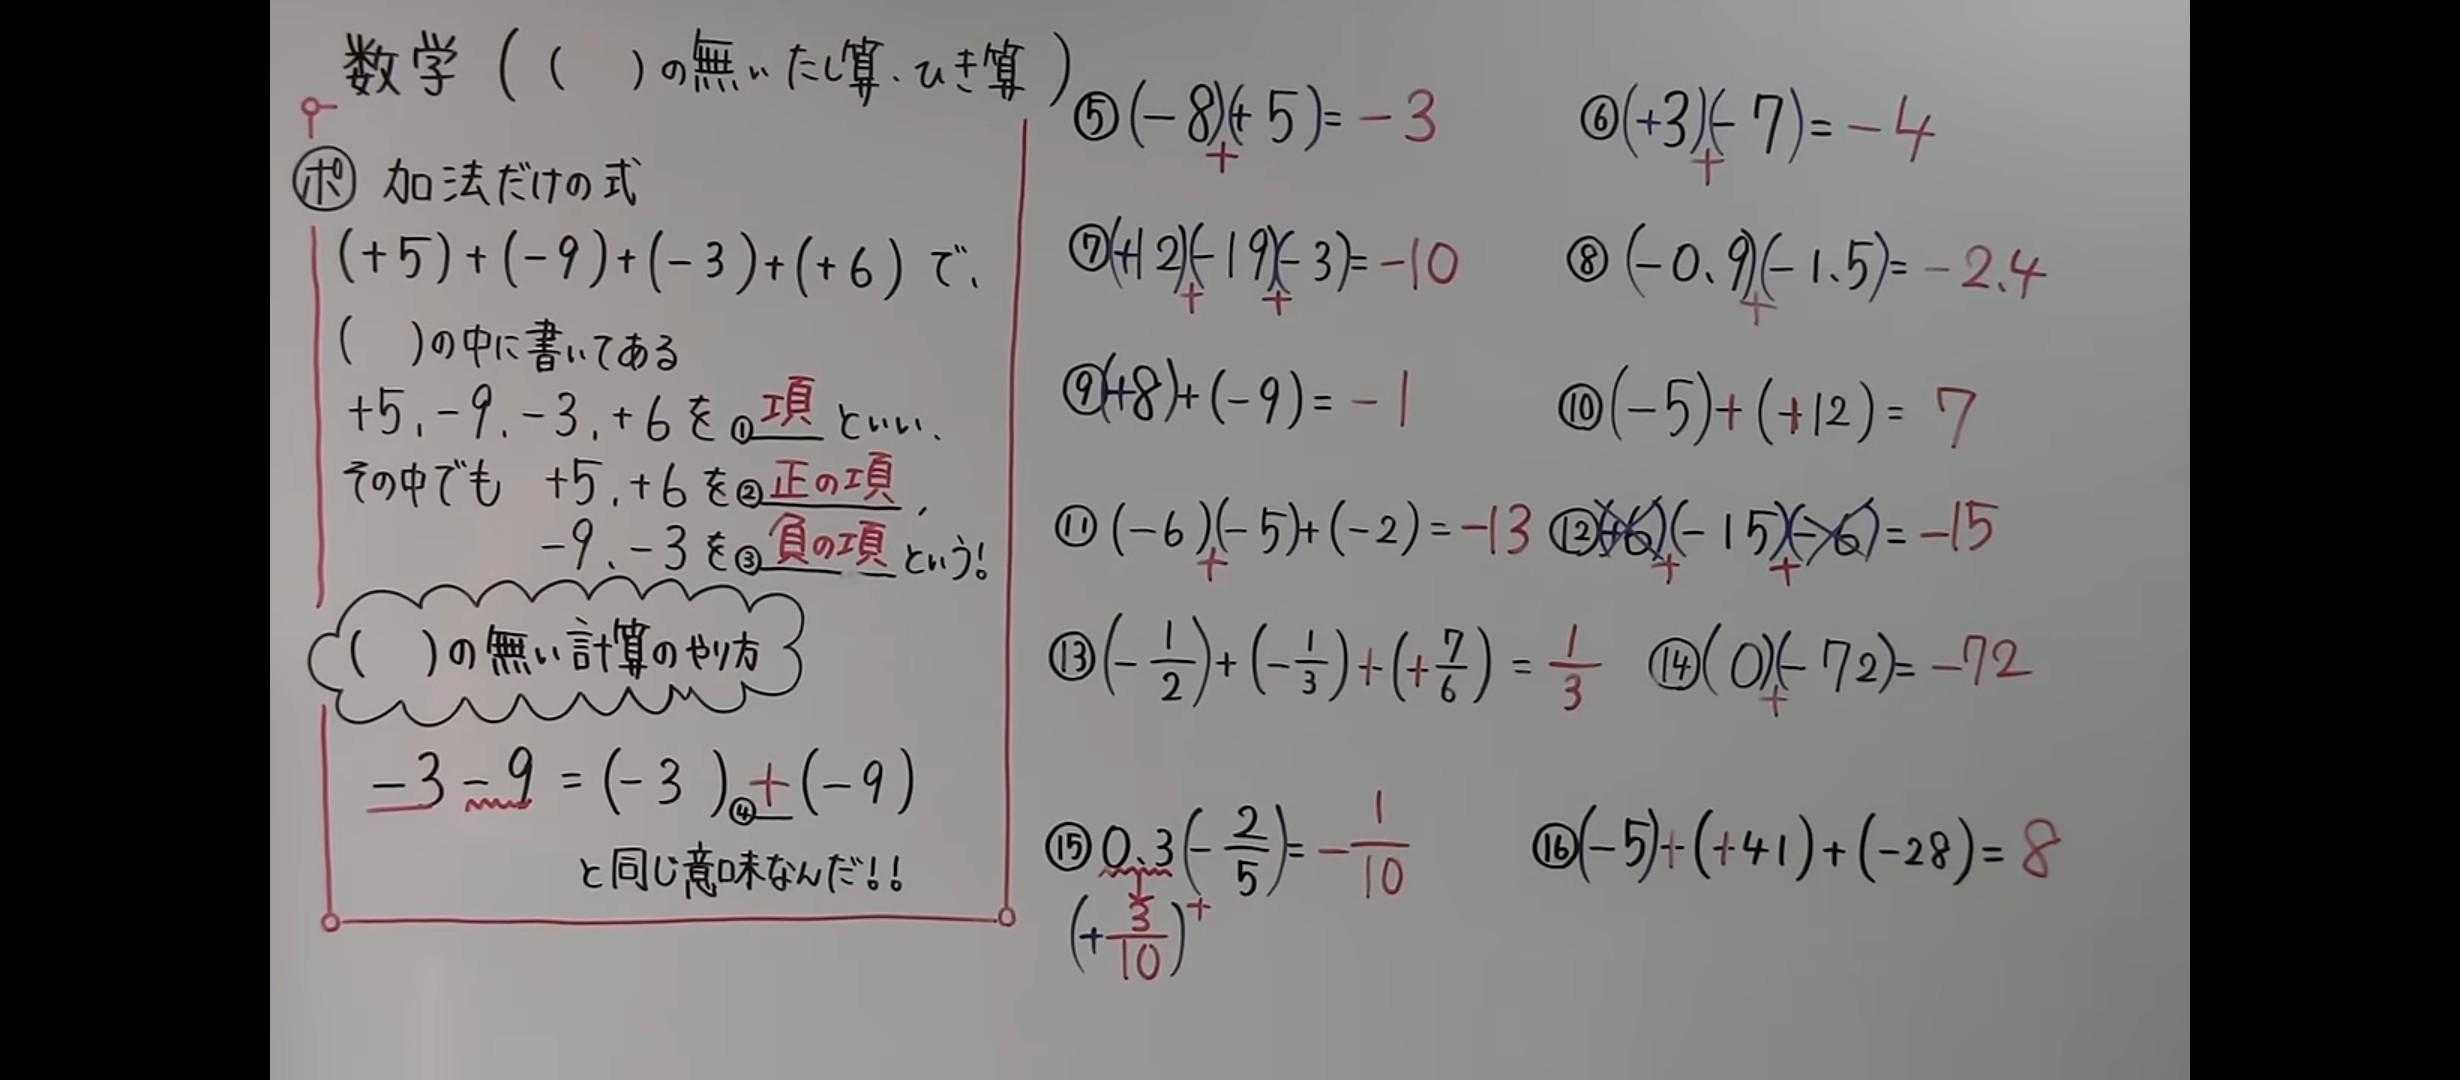 数学 ( ( )の無いたし算・ひき算 )
ポ 加法だけの式
(+5)+(-9)+(-3)+(+6) で、
( )の中に書いてある
+5, -9, -3, +6 を ①項 といい、
その中でも +5, +6 を ②正の項、
-9, -3 を ③負の項 という!
( )の無い計算のやり方
-3 -9 = (-3) ④+ (-9)
と同じ意味なんだ!!
⑤ (-8)+(+5) = -3
⑥ (+3)+(-7) = -4
⑦ (+12)+(-19)+(-3) = -10
⑧ (-0.9)+(-1.5) = -2.4
⑨ (+8)+(-9) = -1
⑩ (-5)+(+12) = 7
⑪ (-6)+(-5)+(-2) = -13
⑫ (+6)+(-15)+(-6) = -15
⑬ (-1/2)+(-1/3)+(+7/6) = 1/3
⑭ (0)+(-72) = -72
⑮ 0.3(-2/5) = -1/10
(+3/10)+
⑯ (-5)+(+41)+(-28) = 8